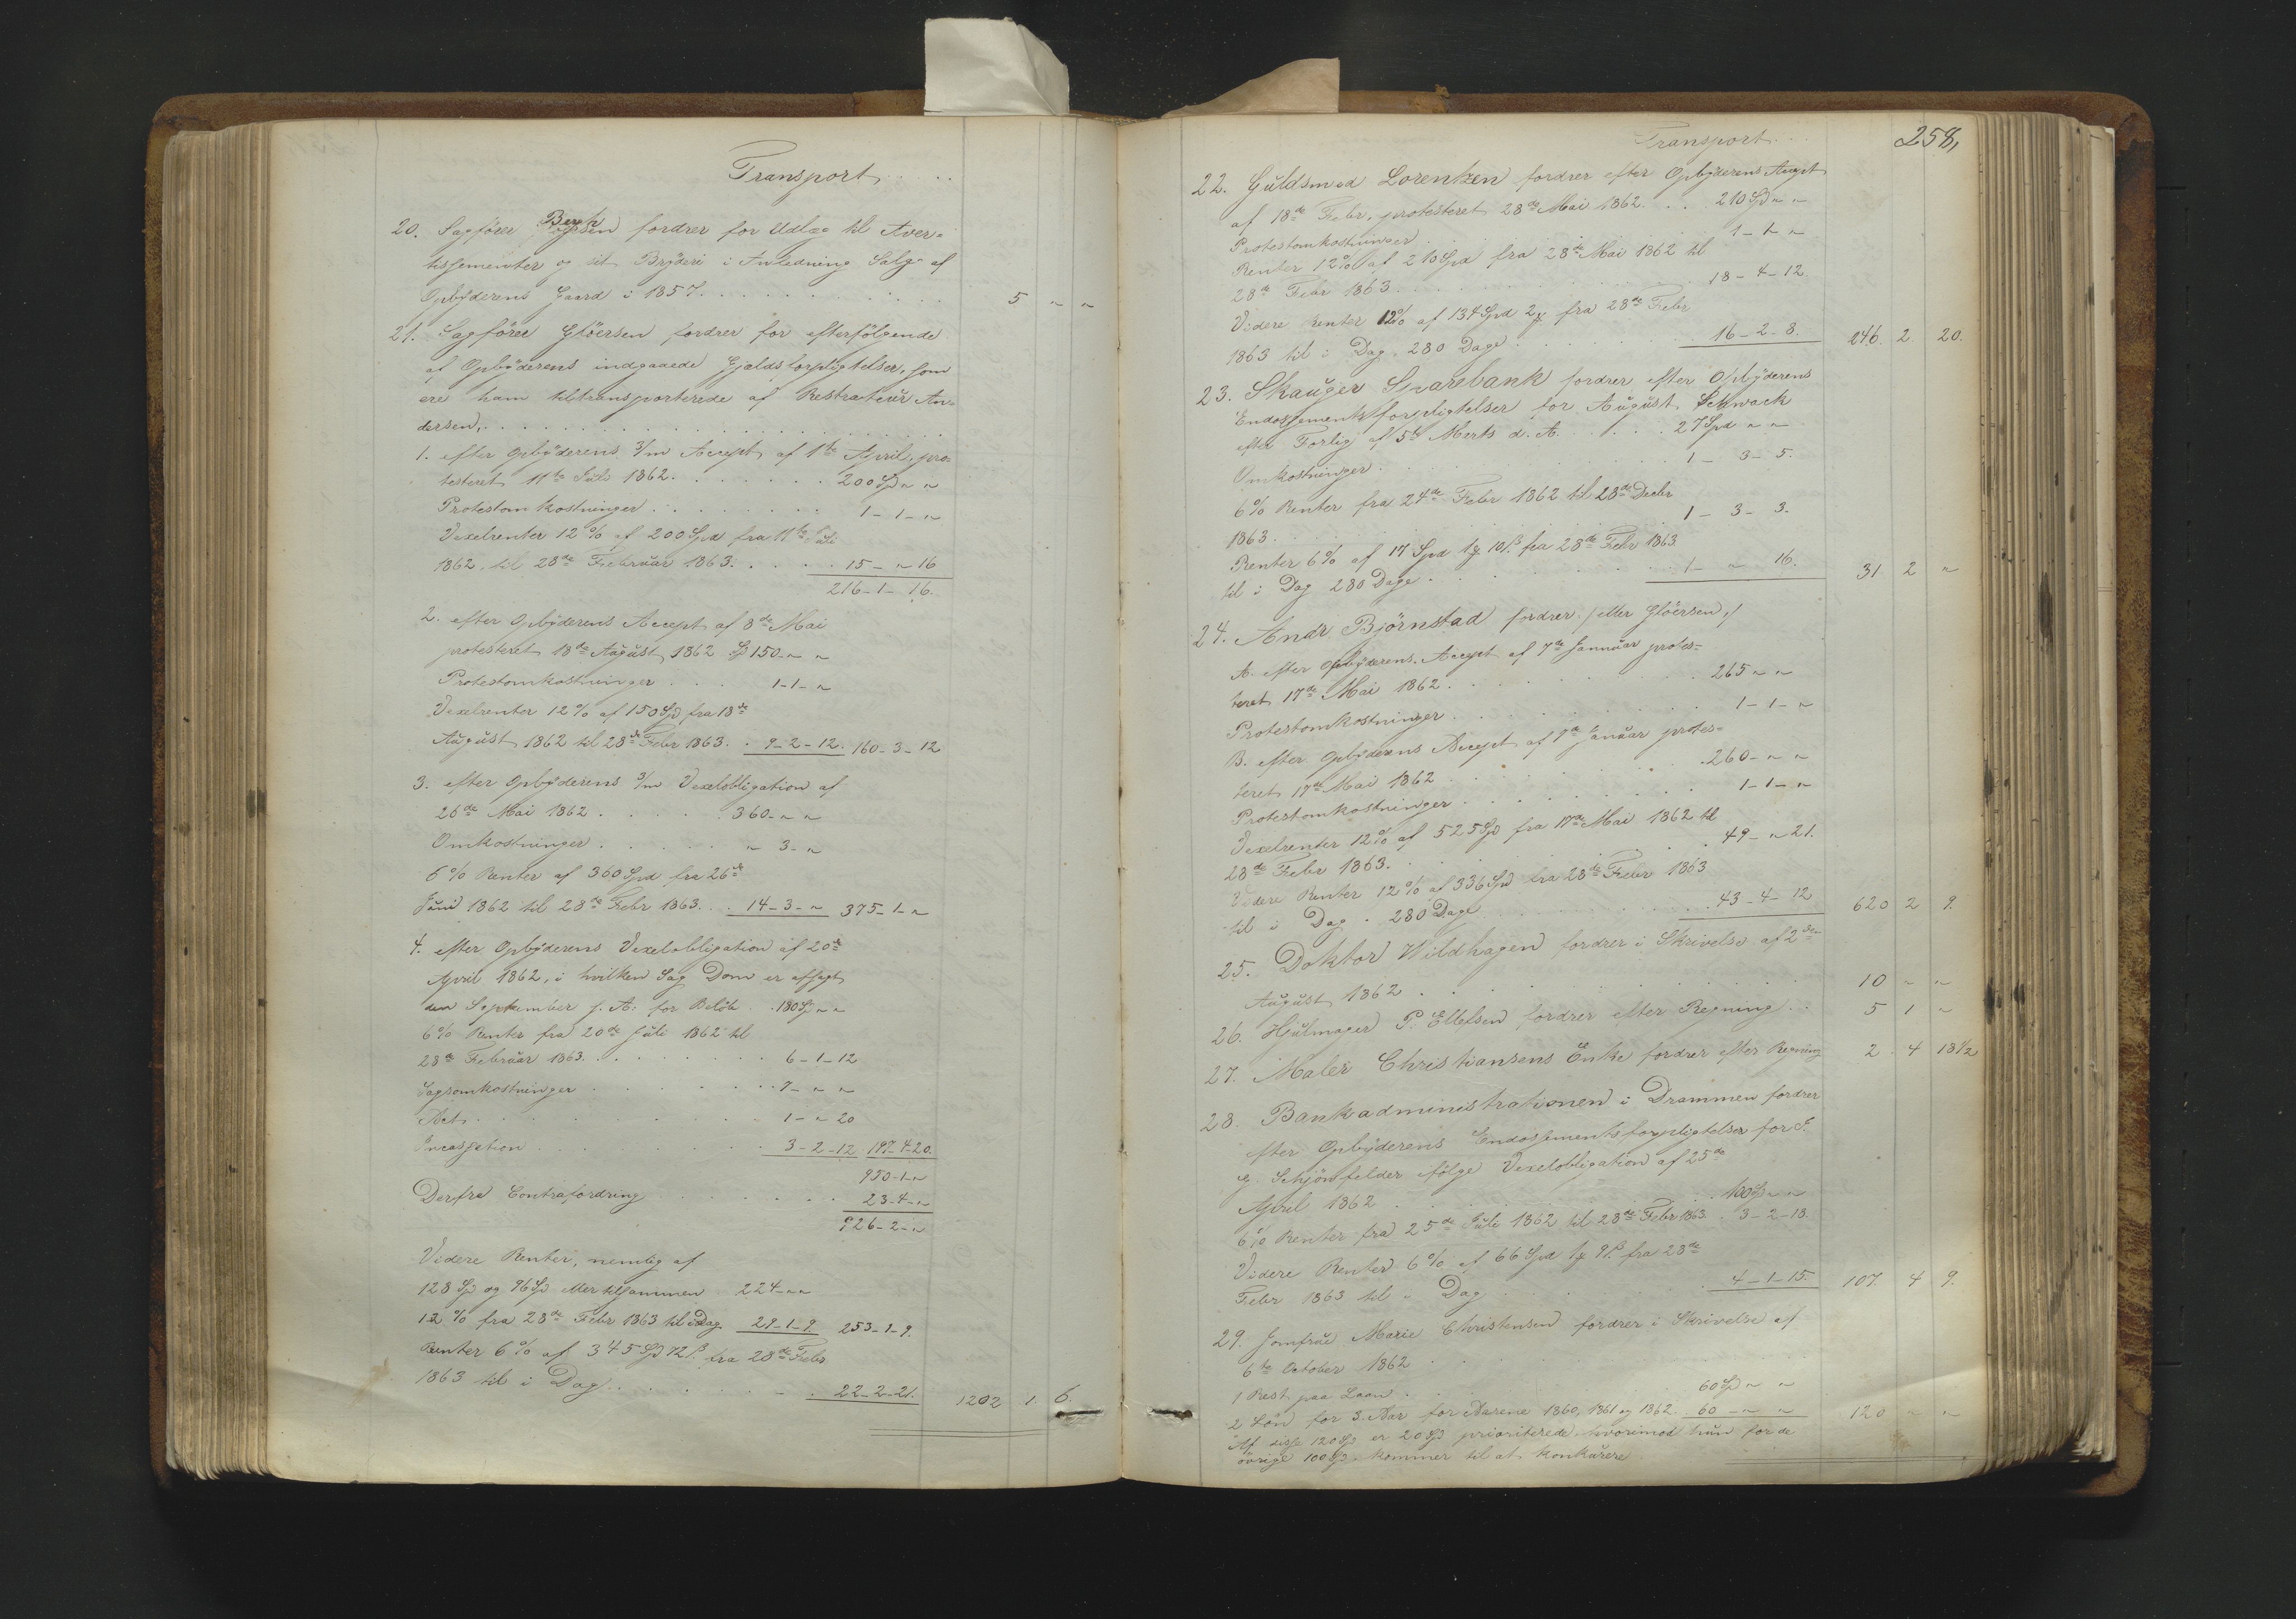 Transport . . . .
20. Sagfører Berch fordrer for Udlæg til Aver-
tissementer og sit Bryderi i Anledning Salg af
Opbyderens Gaard i 1857. . . . . . 5 " "
21. Sagfører Gløersen fordrer for efterfølgende
af Opbyderens indgaaede Gjeldsforpligtelser, som
ere ham tiltransporterede af Restrateur An-
dersen, . . . . .
1. efter Opbyderens 3/m Accept af 1ste April, pro-
testeret 11te Juli 1862. . . . . 200 Spd " "
Protestomkostninger . . . . . 1 - 1 - "
Vexelrenter 12% af 200 Spd fra 11te Juli
1862, til 28de Februar 1863. . . . . 15 - " 16
216 - 1 - 16.
2. efter Opbyderens Accept af 8de Mai
protesteret 18de August 1862 Sp 150 - " "
Protestomkostninger . . . 1 - 1 - "
Vexelrenter 12% af 150 Spd fra 18de
August 1862 til 28de Febr 1863. . 9 - 2 - 12. 160 - 3 - 12
3. efter Opbyderens 3/m Vexelobligation af
26de Mai 1862 . . . . . 360 - " "
Omkostninger . . . . . " 3 - "
6% Renter af 360 Spd fra 26de
Juni 1862 til 28de Febr 1863. . 14 - 3 - " 375 - 1 - "
4. efter Opbyderens Vexelobligation af 20de
April 1862, i hvilken Sag Dom er afsagt
den September f. A. for Beløb . . 180 Sp " "
6% Renter fra 20de Juli 1862 til
28de Februar 1863. . . . . 6 - 1 - 12
Sagsomkostninger . . . . . 7 - " "
Act . . . . . 1 - " 20
Incassation . . . . . 3 - 2 - 12 197 - 4 - 20.
950 - 1 - "
Derfra Contrafordring . . . . . 23 - 4 - "
926 - 2 - "
Videre Renter, nemlig af
128 Sp og 96 Sp eller tilsammen 224 - " "
12% fra 28de Febr 1863 til i Dag 29 - 1 - 9. 253 - 1 - 9.
Renter 6% af 345 Spd 72 ß fra 28de Febr
1863 til i Dag . . . . . 22 - 2 - 21. 1202 1. 6.
Transport . . . 258,
22. Guldsmed Lorentzen fordrer efter Opbyderens Accept
af 18de Febr, protesteret 28de Mai 1862. . . 210 Spd " "
Protestomkostninger . . . . . 1 - 1 - "
Renter 12% af 210 Spd fra 28de Mai 1862 til
28de Febr 1863 . . . . . 18 - 4 - 12.
Videre Renter 12% af 134 Spd 2 fra 28de Febr
1863 til i Dag, 280 Dage . . . . . 16 - 2 - 8. 246. 2. 20.
23. Skauger Sparebank fordrer efter Opbyderens
Endossementsforpligtelser for August Schwack
efter Forlig af 5te Marts d. A. . . . . 27 Spd " "
Omkostninger . . . . . 1 - 3 - 5.
6% Renter fra 24de Febr 1862 til 28de Decbr
1863 . . . . . 1 - 3 - 3.
Renter 6% af 17 Spd 1 10 ß fra 28de Febr 1863
til i Dag 280 Dage . . . . . 1 - " 16. 31 2 "
24. Andr Bjørnstad fordrer /eller Gløersen,/
A. efter Opbyderens Accept af 7de Januar protes-
teret 17de Mai 1862 . . . . . 265 " "
Protestomkostninger . . . . . 1 - 1 - "
B. efter Opbyderens Accept af 7de Januar protes-
teret 17de Mai 1862 . . . . . 260 - " "
Protestomkostninger . . . . . 1 - 1 - "
Vexelrenter 12% af 525 Spd fra 17de Mai 1862 til
28de Febr 1863. . . . . 49 - " 21.
Videre Renter 12% af 336 Spd fra 28de Febr 1863
til i Dag . 280 Dage . . . . . 43 - 4 - 12 620 2 9.
25. Doktor Wildhagen fordrer i Skrivelse af 2den
August 1862 . . . . . 10 " "
26. Hjulmager P. Ellefsen fordrer efter Regning . . 5 1 "
27. Maler Christiansens Enke fordrer efter Regning 2 . 4 18 1/2
28. Bankadministrationen i Drammen fordrer
efter Opbyderens Endossementsforpligtelser for J.
G. Schjønfelder ifølge Vexelobligation af 25de
April 1862 . . . . . 100 Sp " "
6% Renter fra 25de Juli 1862 til 28de Febr 1863. . 3 - 2 - 18.
Videre Renter 6% af 66 Spd 1 9 ß fra 28de
Febr 1863 til i Dag . . . . . 4 - 1 - 15. 107. 4 9.
29. Jomfrue Marie Christensen fordrer i Skrivelse af
6te October 1862 . . . . .
1 Rest paa Laan . . . . . 60 Sp " "
2 Løn for 3 Aar for Aarene 1860, 1861 og 1862. 60 - " " 120 " "
Af disse 120 Sp er 20 Sp prioriterede hvorimod hun for de
øvrige 100 Sp. kommer til at konkurere